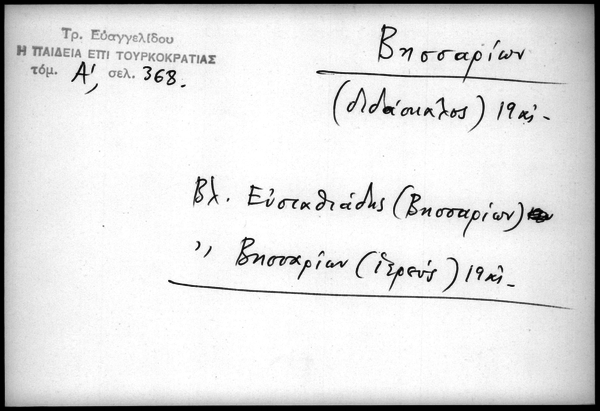 Τρ. Εὐαγγελίδου
Η ΠΑΙΔΕΙΑ ΕΠΙ ΤΟΥΡΚΟΚΡΑΤΙΑΣ
τόμ. Α', σελ. 368.
Βησσαρίων
(διδάσκαλος) 19 αἰ.
Βλ. Εὐσταθιάδης (Βησσαρίων)
,, Βησσαρίων (ἱερεύς) 19 αἰ.